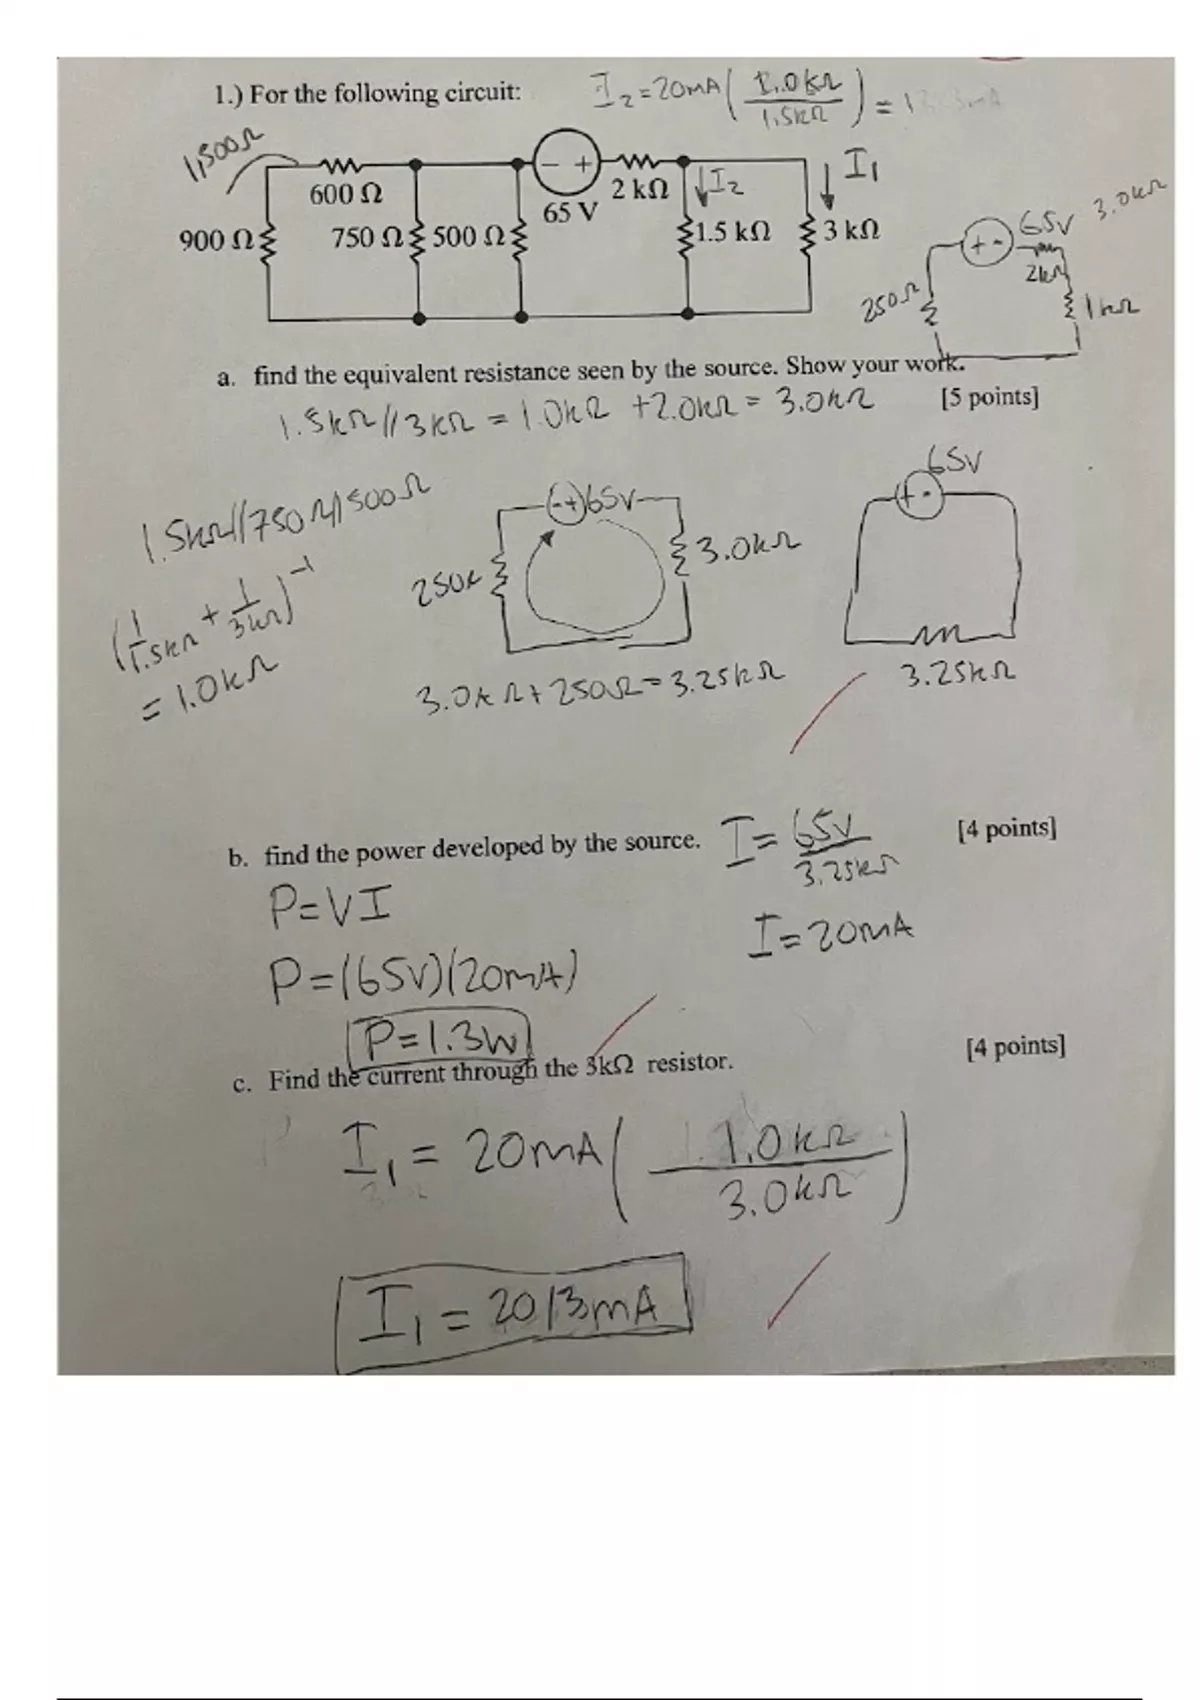 1.) For the following circuit:
I₂=20mA(1.0kΩ/1.5kΩ) =
1,500Ω
600 Ω
- +
65 V
2 kΩ
I₂
I₁
900 Ω
750 Ω
500 Ω
1.5 kΩ
3 kΩ
+ -
65V
3.0kΩ
2kΩ
250Ω
1kΩ
a. find the equivalent resistance seen by the source. Show your work.
[5 points]
1.5kΩ//3kΩ = 1.0kΩ +2.0kΩ = 3.0kΩ
1.5kΩ//750Ω//500Ω
(1/1.5kΩ + 1/3kΩ)⁻¹
= 1.0kΩ
-+ 65V
250Ω
3.0kΩ
3.0kΩ+250Ω=3.25kΩ
65V
+ -
3.25kΩ
b. find the power developed by the source.
[4 points]
I= 65V/3.25kΩ
P=VI
I=20mA
P=(65V)(20mA)
P=1.3W
c. Find the current through the 3kΩ resistor.
[4 points]
I₁ = 20mA(1.0kΩ/3.0kΩ)
I₁ = 20/3mA